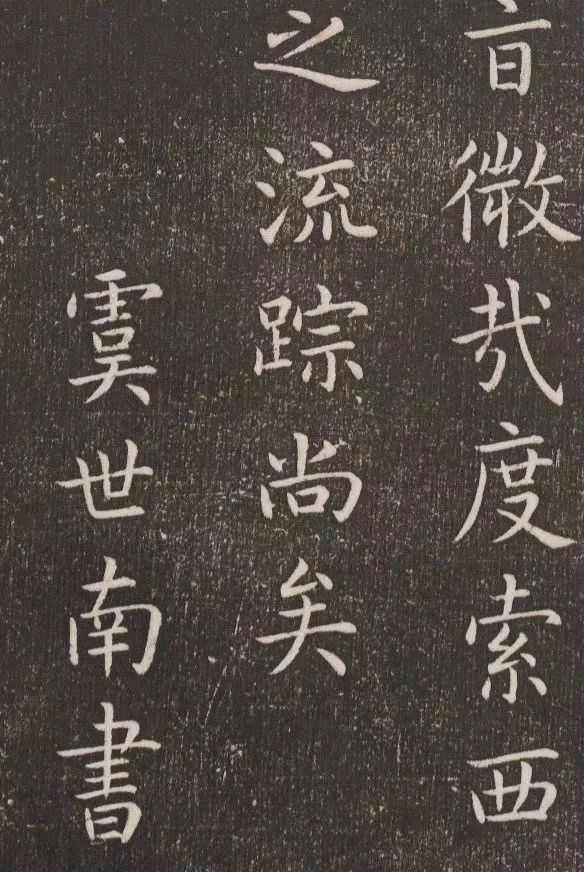 旨微哉度索西
之流踪尚矣
虞世南書